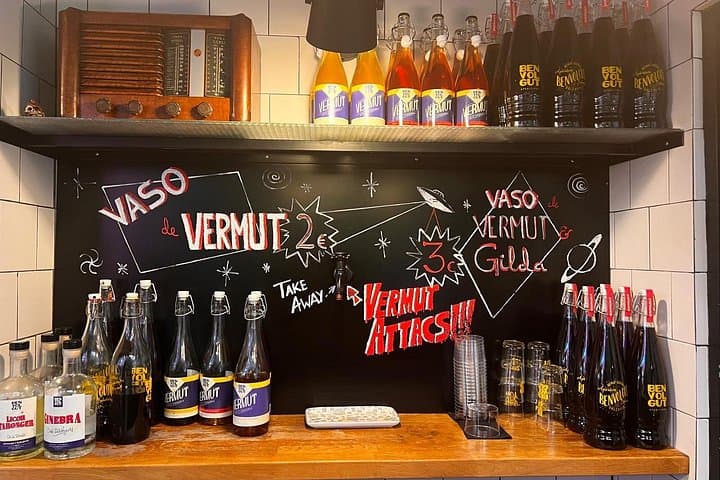 VERMUT
VERMUT
VERMUT
VERMUT
VERMUT
BEN
VOL
GUT
BENVOLGUT
BEN
VOL
GUT
BENVOLGUT
VASO
de VERMUT 2€
VASO de
VERMUT
& Gilda
3€
TAKE
AWAY..
VERMUT
ATTACS!!!
LICOR
GINEBRA
VERMUT
VERMUT
VERMUT
BEN
VOL
GUT
BEN
VOL
GUT